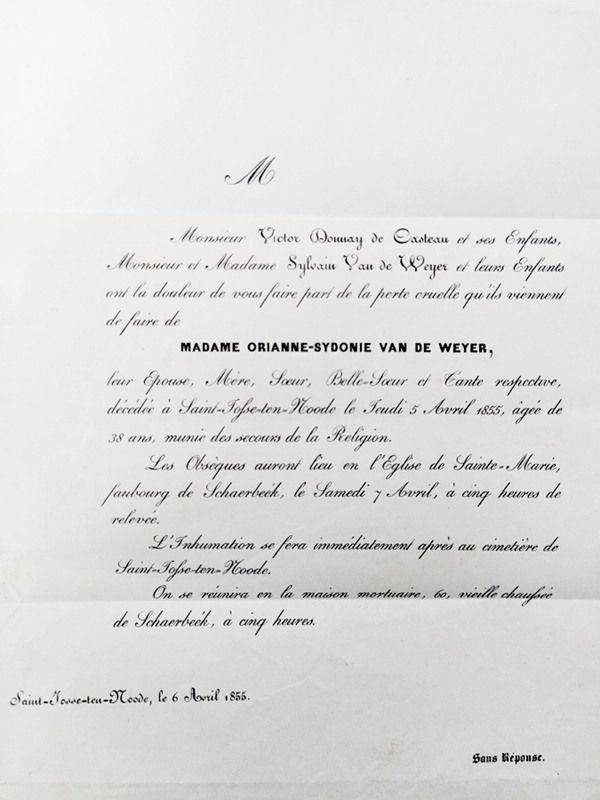 M
Monsieur Victor Donnay de Casteau et ses Enfants,
Monsieur et Madame Sylvain Van de Weyer et leurs Enfants
ont la douleur de vous faire part de la perte cruelle qu'ils viennent
de faire de
MADAME ORIANNE-SYDONIE VAN DE WEYER,
leur Epouse, Mère, Sœur, Belle-Sœur et Tante respective,
décédée à Saint-Josse-ten-Noode le Jeudi 5 Avril 1855, âgée de
38 ans, munie des secours de la Religion.
Les Obsèques auront lieu en l'Eglise de Sainte-Marie,
faubourg de Schaerbeék, le Samedi 7 Avril, à cinq heures de
relevée.
L'Inhumation se fera immédiatement après au cimetière de
Saint-Josse-ten-Noode.
On se réunira en la maison mortuaire, 60, vieille chaussée
de Schaerbeék, à cinq heures.
Saint-Josse-ten-Noode, le 6 Avril 1855.
Sans Réponse.